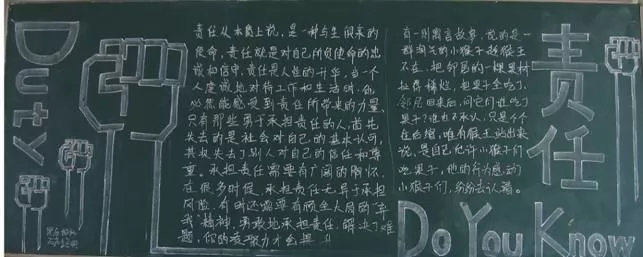 Duty
责任从本质上说，是一种与生俱来的
使命，责任就是对自己所负使命的忠
诚和信守，责任是人性的升华，当一个
人虔诚地对待工作和生活时，他
必然能感受到责任所带来的力量。
只有那些勇于承担责任的人，首先
失去的是社会对自己的基本认可，
其次失去了别人对自己的信任和尊
重。承担责任需要有广阔的胸怀，
在很多时候，承担责任无异于承担
风险，有时还需要有顾全大局的"弃
我"精神，勇敢地承担责任，解决了难
题，你的
有一则寓言故事，说的是一
群淘气的小猴子趁猴王
不在，把邻居的一棵果树
把果子全吃了，
邻居回来后，问它们谁吃了
果子？谁也不承认，只是个个
在唯有猴王站出来
说，是自己允许小猴子们
吃果子，他的行为感动了
小猴子们，纷纷去认错。
责任
Do You Know